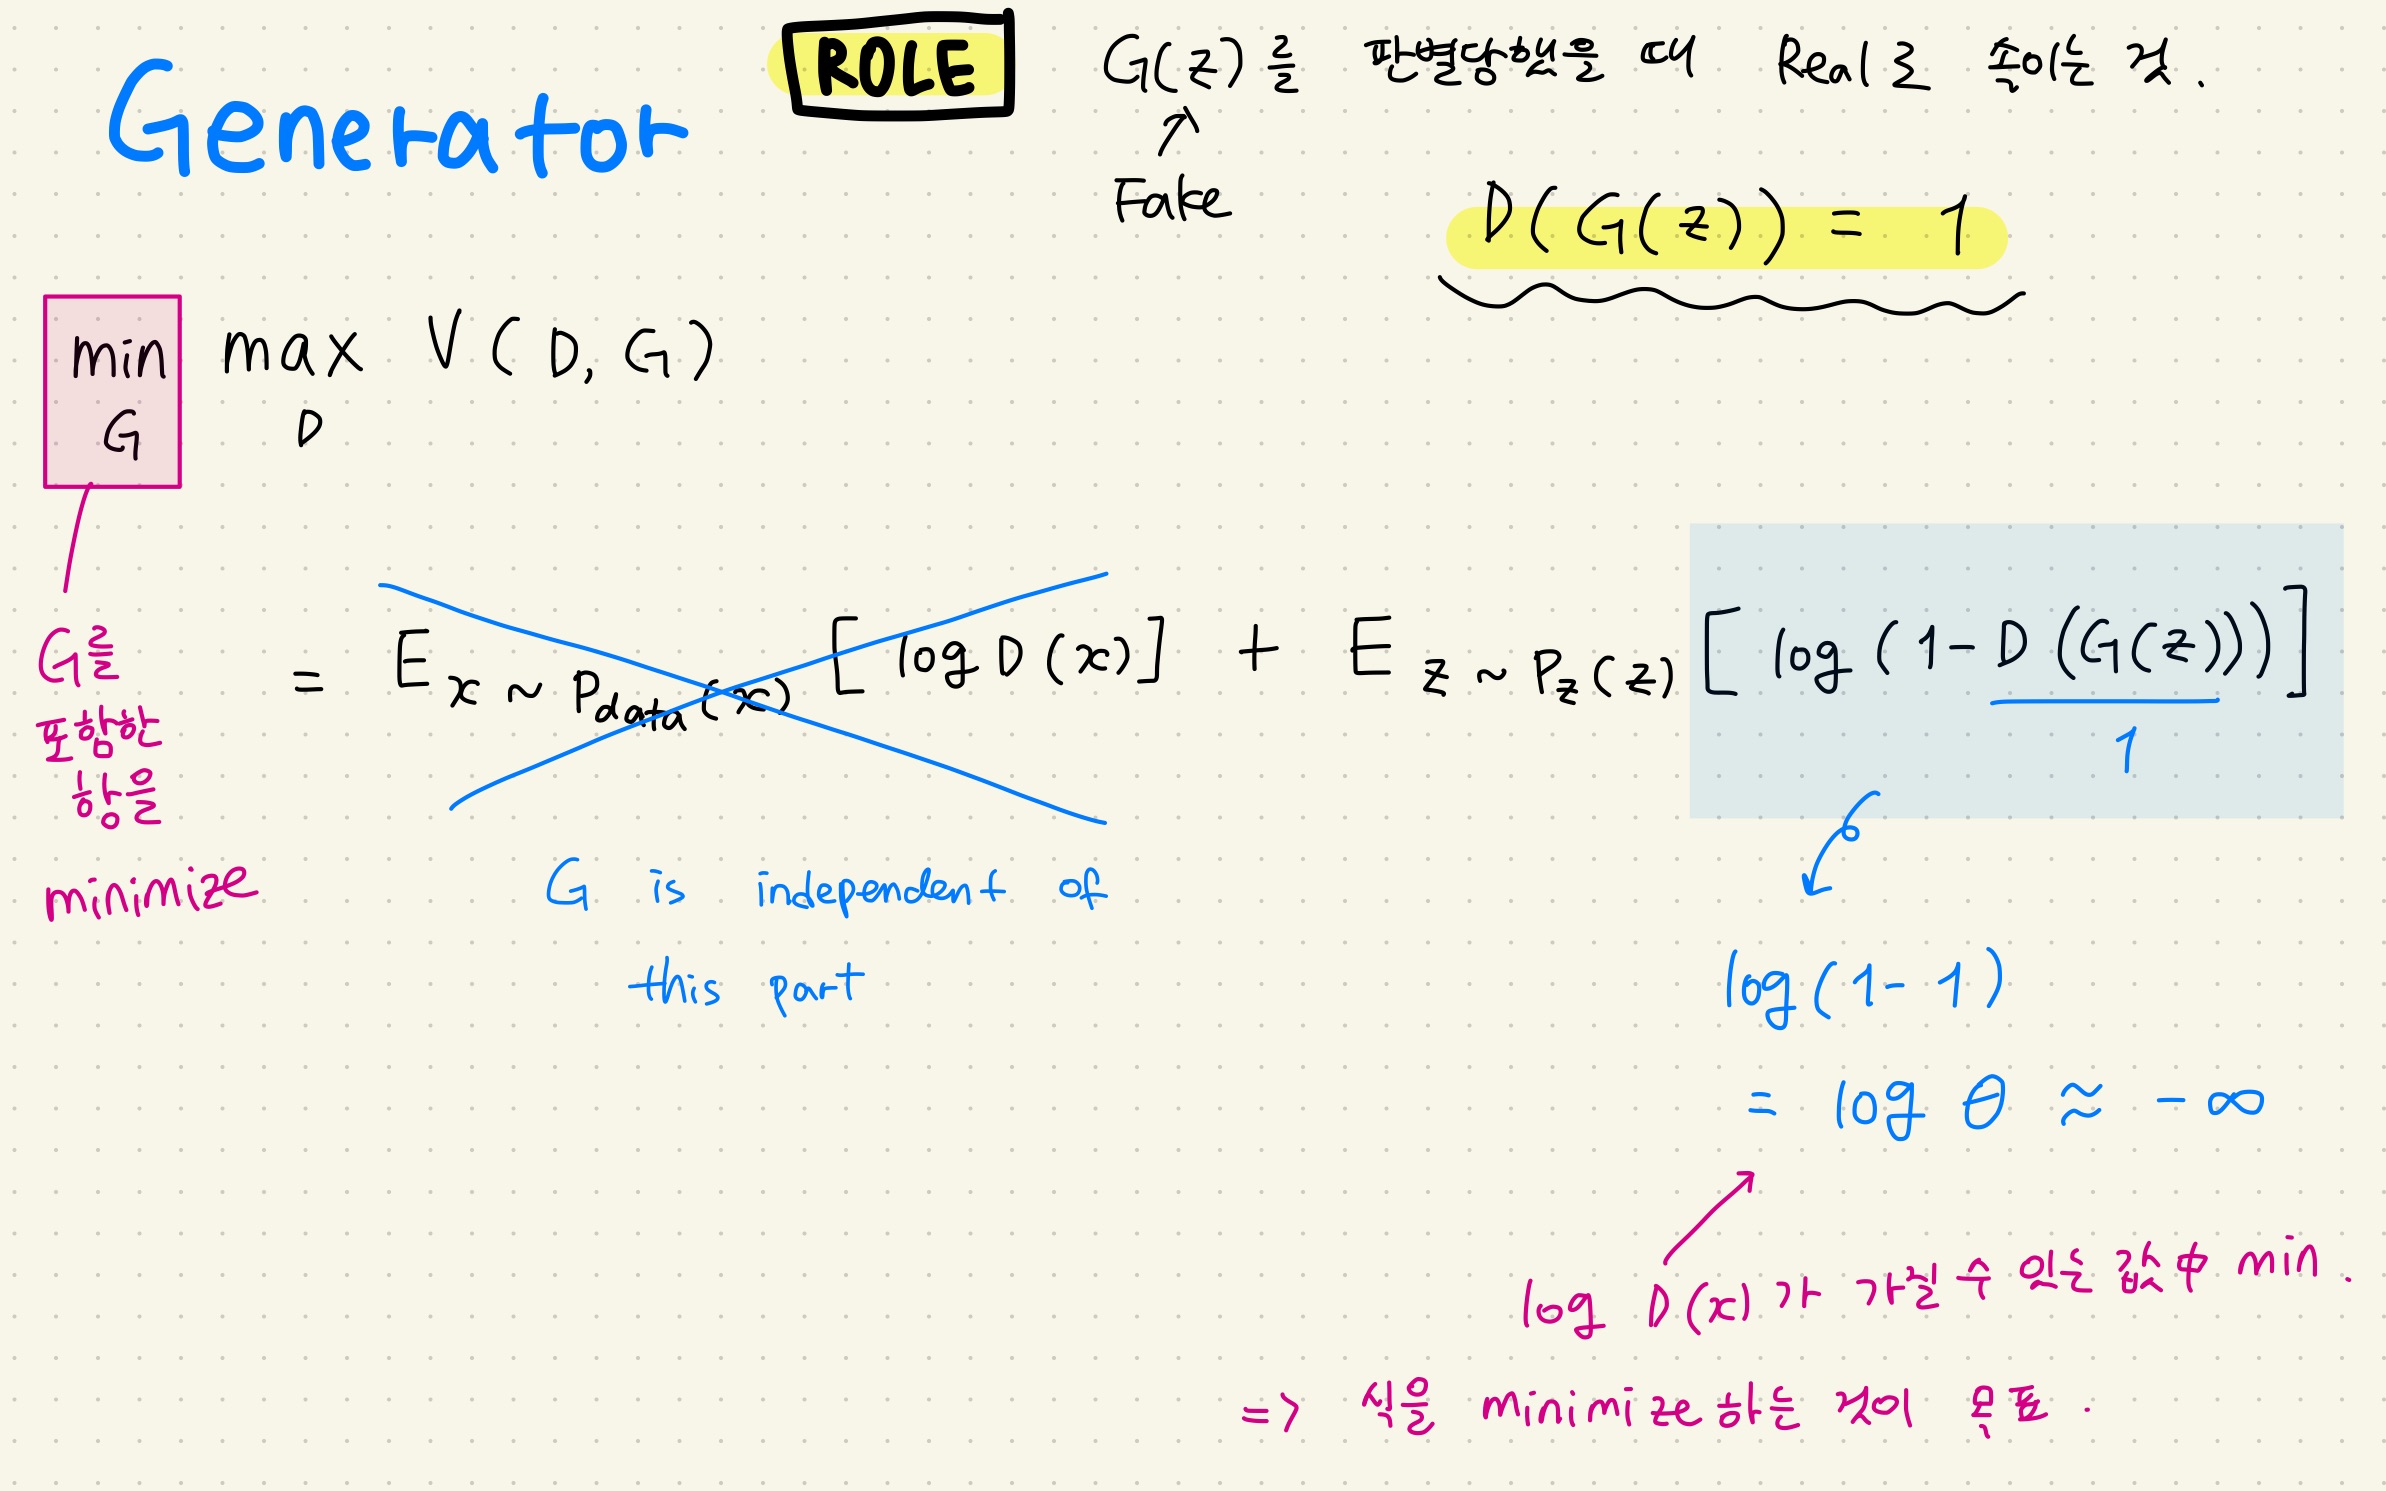 Generator
ROLE
G(z)를 판별당했을 때 Real로 속이는 것.
Fake
D(G(z)) = 1
min max V(D, G)
G D
G를
포함한
항을
minimize
= E x ~ Pdata(x) [log D(x)] + E z ~ Pz(z) [log(1-D(G(z)))]
1
G is independent of
this part
log(1-1)
= log 0 ≈ -∞
log D(x)가 가질 수 있는 값 中 min.
=> 식을 minimize하는 것이 목표.